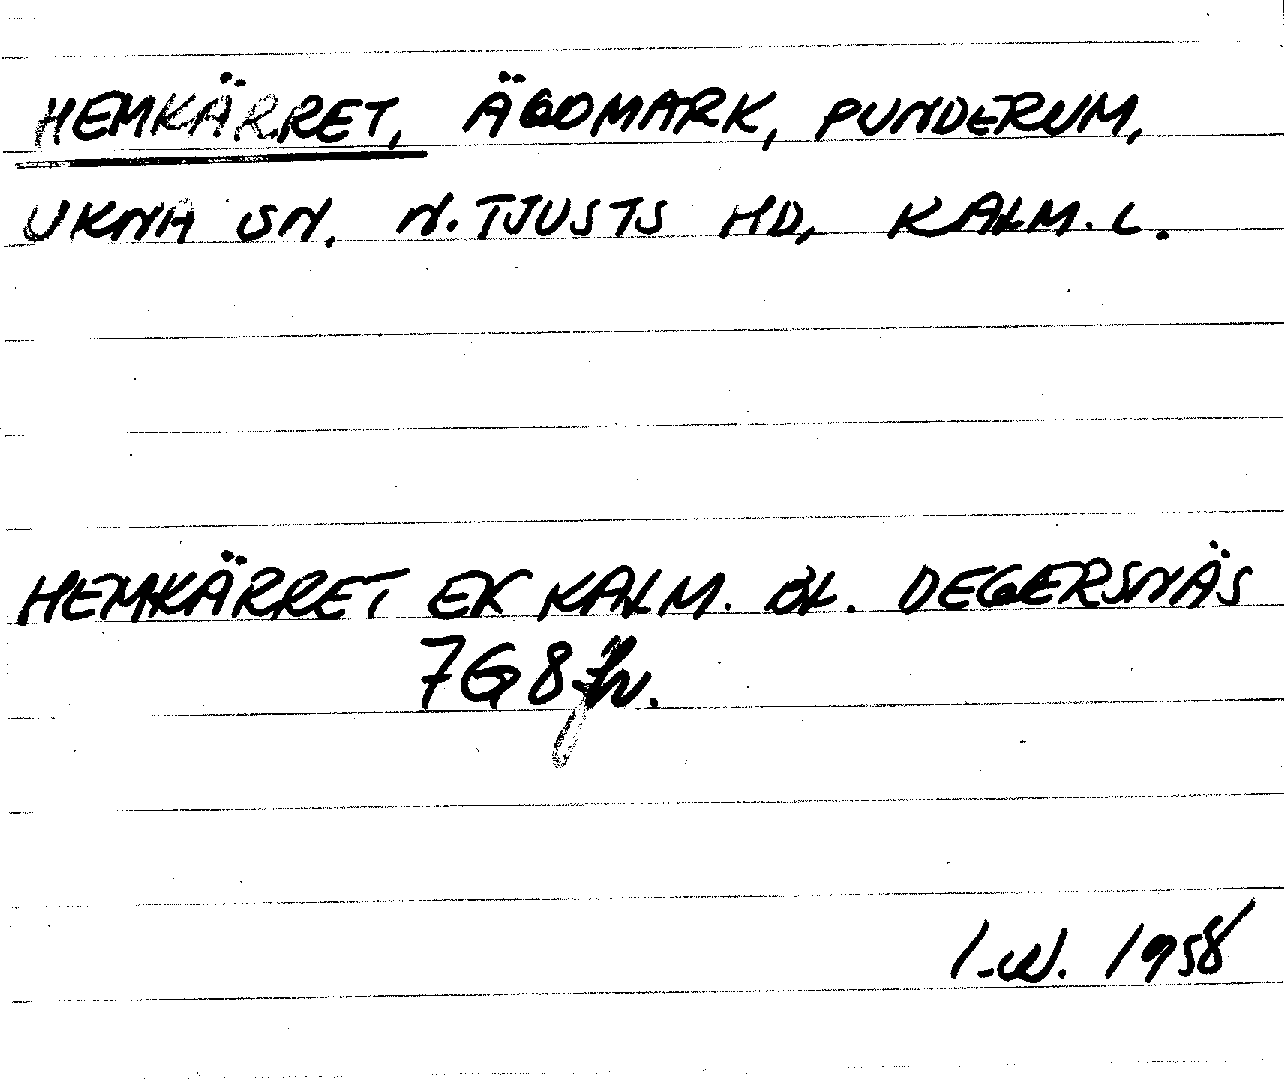 HEMKÄRRET, ÄGOMARK, PUNDERUM,
UKNA SN. N. TJUSTS HD, KALM. L.
HEMKÄRRET EK KALM. BL. DEGERSNÄS
7G8
1958